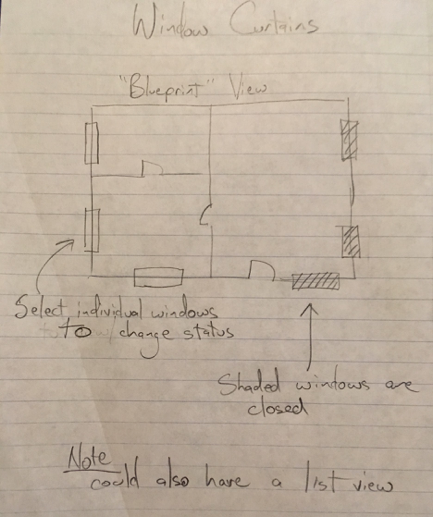 Window Curtains
"Blueprint" View
Select individual windows
to change status
Shaded windows are
closed
Note
could also have a list view